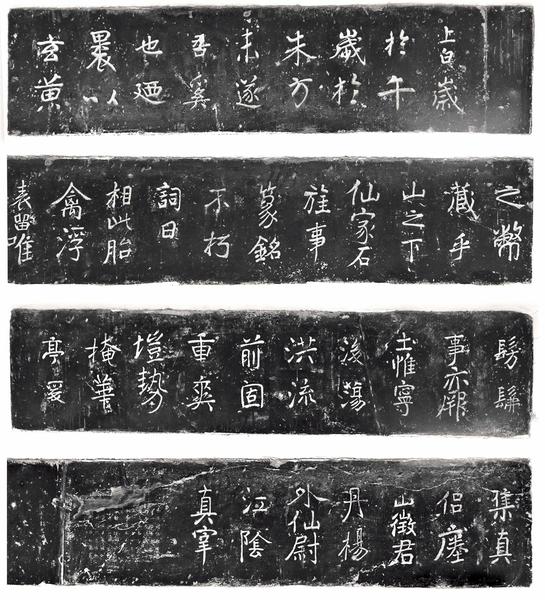 上皇歲
於午
歲於
朱方
未遂
吾奚
也迺
裹以
玄黃
之幣
藏乎
山之下
仙家石
旌事
篆銘
不朽
詞曰
相此胎
禽浮
表留唯
髣髴
事亦
土惟寧
後蕩
洪流
前固
重爽
塏勢
掩華
亭爰
集真
侶瘞
山徵君
丹楊
外仙尉
江陰
真宰